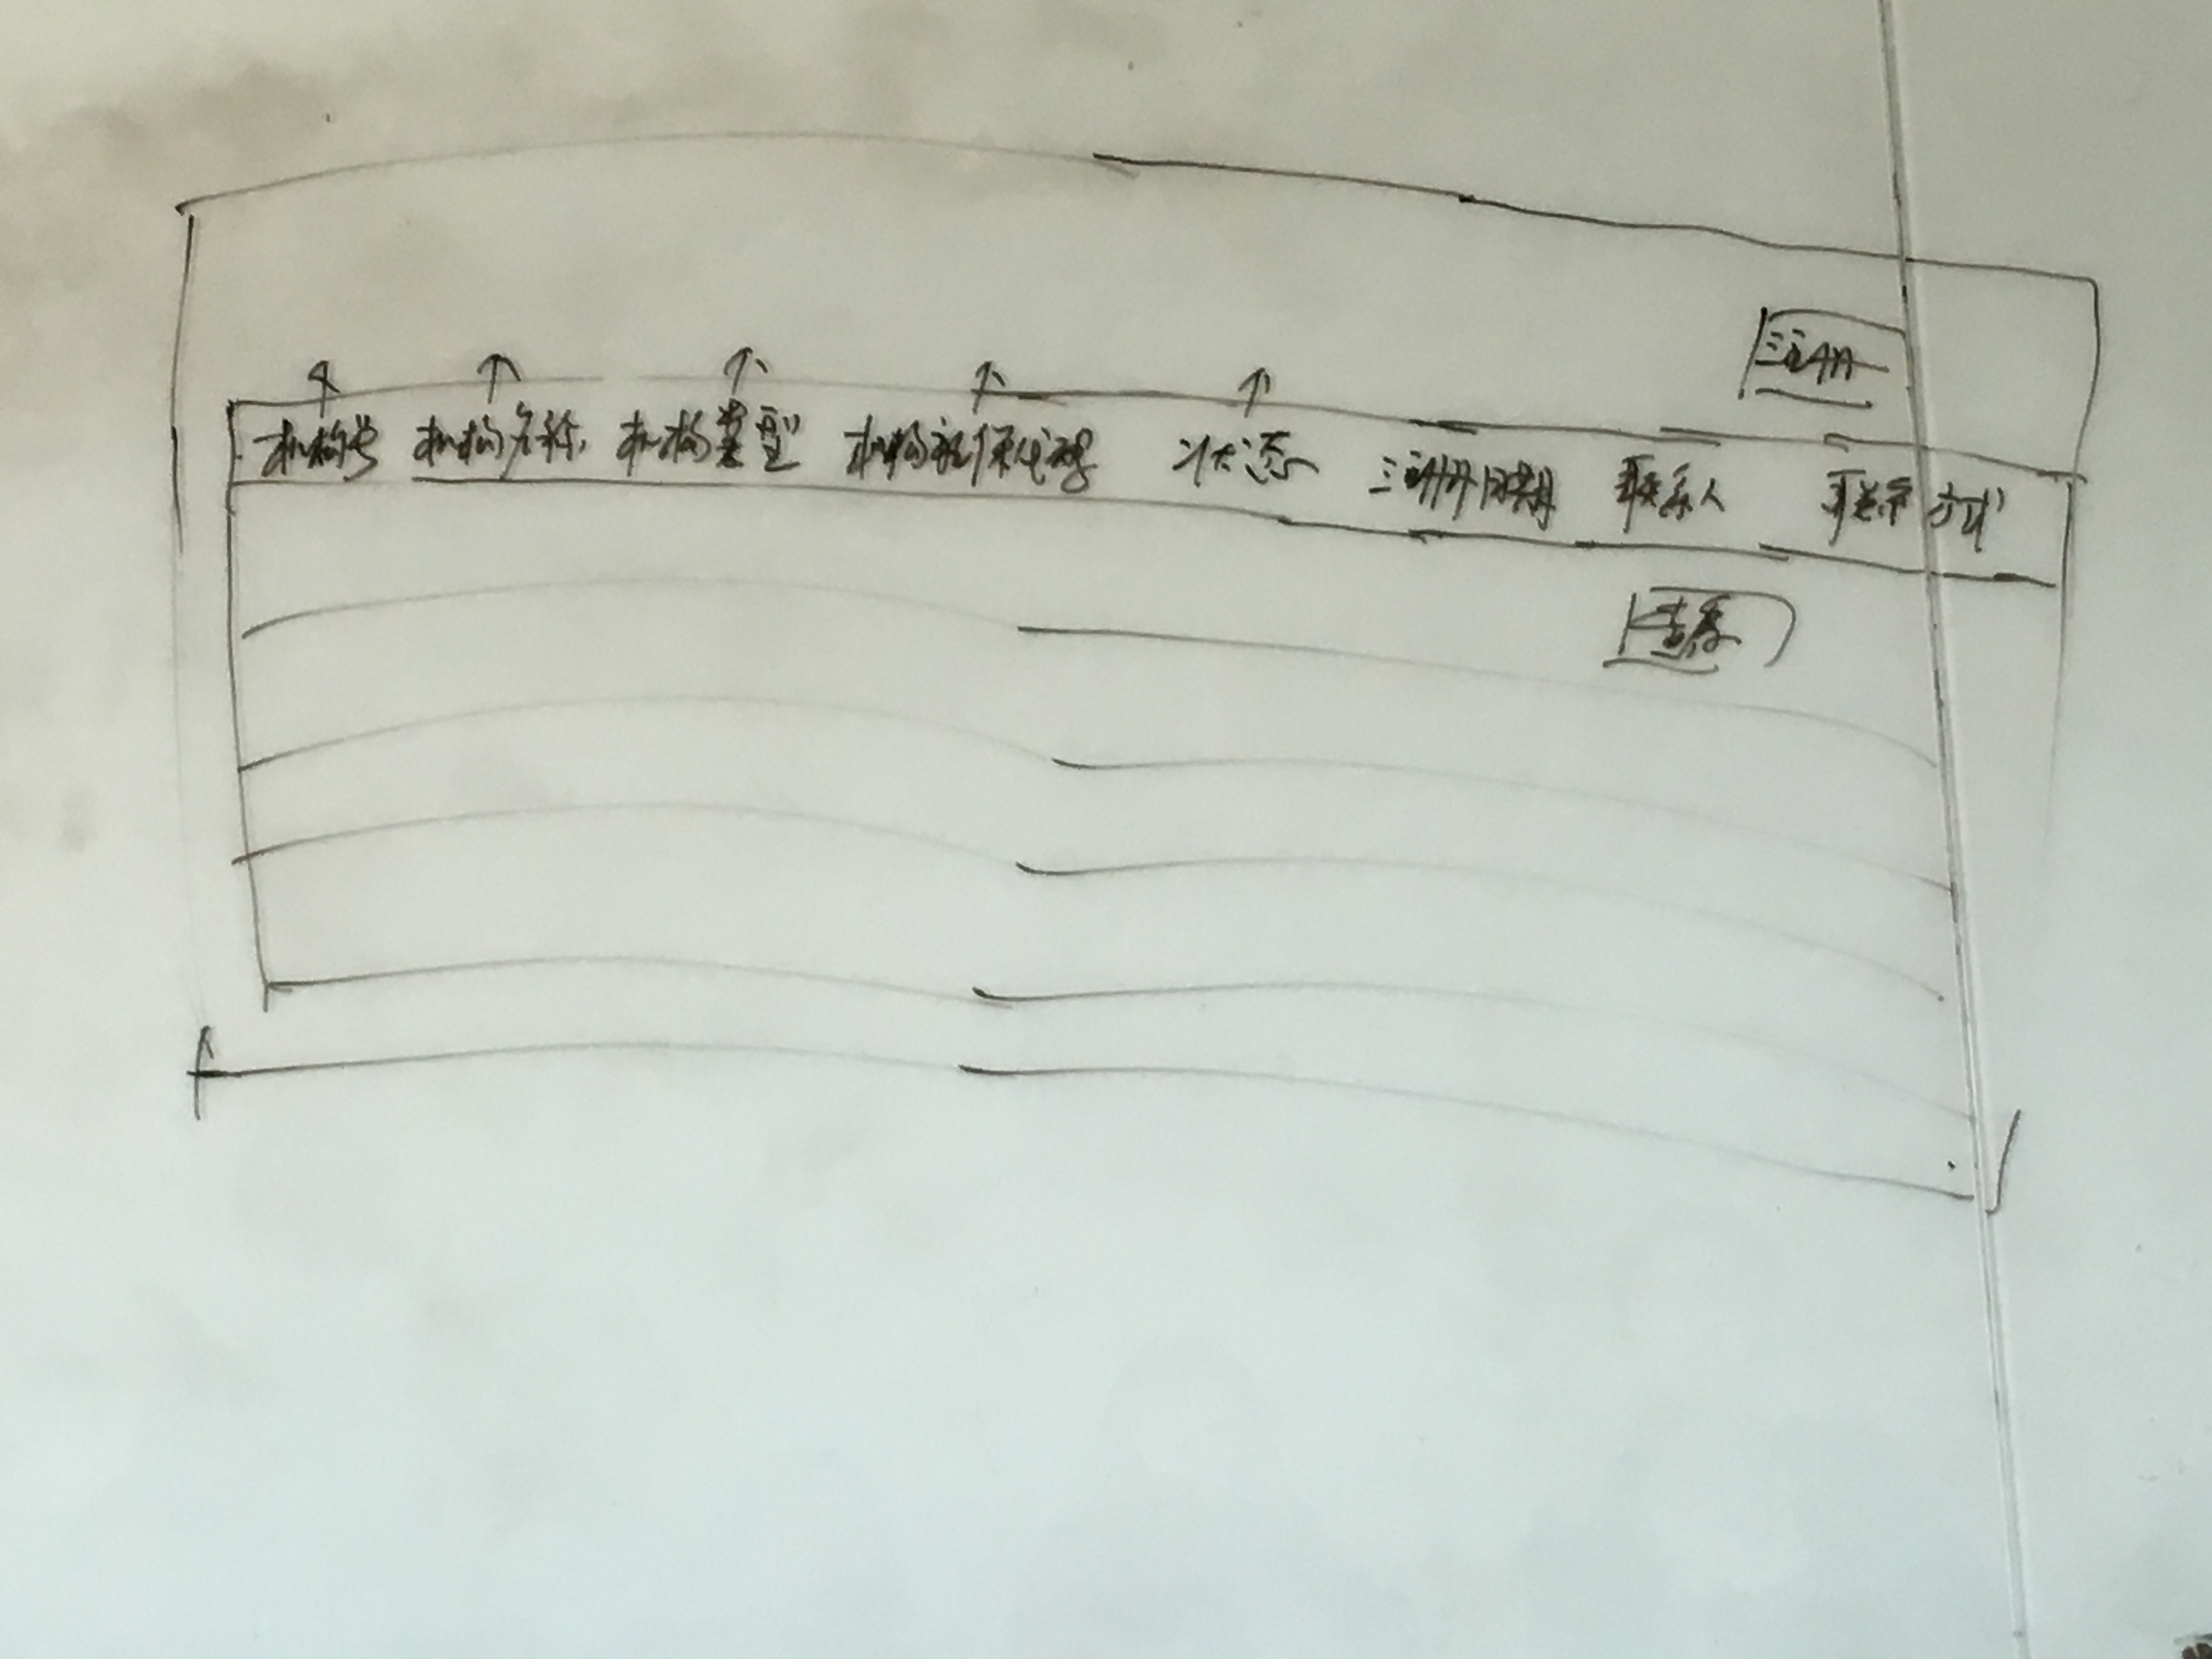 注册
机构号 机构名称 机构类型 机构社保代码 状态 注册日期 联系人 联系方式